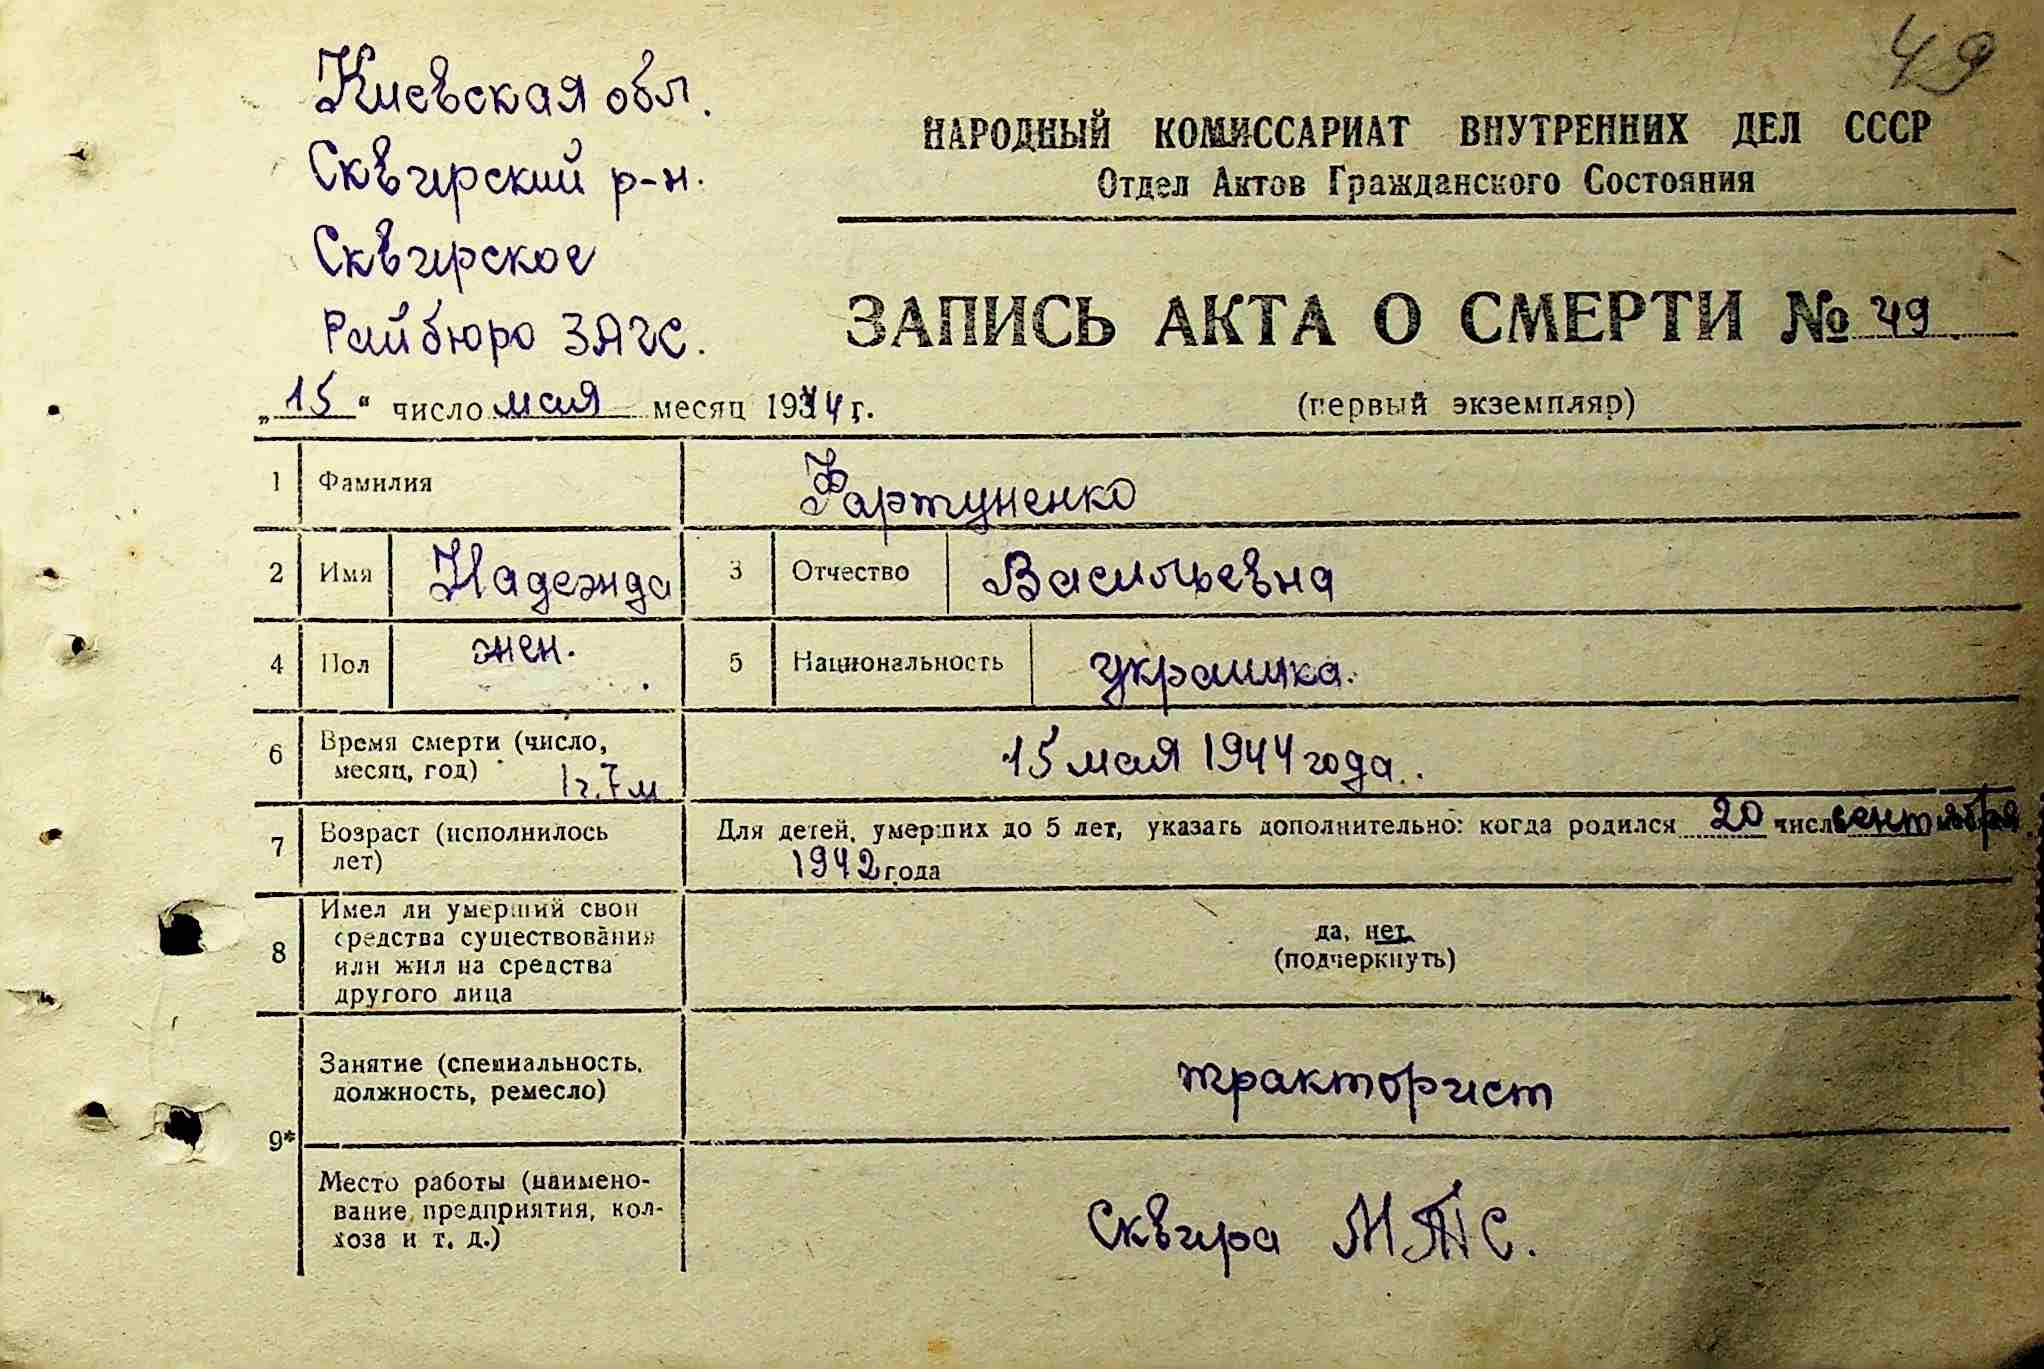 49
Киевская обл.
Сквирский р-н.
Сквирское
Райбюро ЗАГС.
НАРОДНЫЙ КОМИССАРИАТ ВНУТРЕННИХ ДЕЛ СССР
Отдел Актов Гражданского Состояния
ЗАПИСЬ АКТА О СМЕРТИ № 49
„15“ число мая месяц 1944 г.
(первый экземпляр)
1 Фамилия Фартуненко
2 Имя Надежда 3 Отчество Васильевна
4 Пол жен. 5 Национальность украинка.
6 Время смерти (число,
месяц, год) 15 мая 1944 года.
1 г. 7 м
7 Возраст (исполнилось
лет)
Для детей, умерших до 5 лет, указать дополнительно: когда родился 20 число сентября
1942 года
8 Имел ли умерший свои
средства существования
или жил на средства
другого лица
да, нет
(подчеркнуть)
9*
Занятие (специальность,
должность, ремесло)
тракторист
Место работы (наимено-
вание предприятия, кол-
хоза и т. д.)
Сквира МТС.